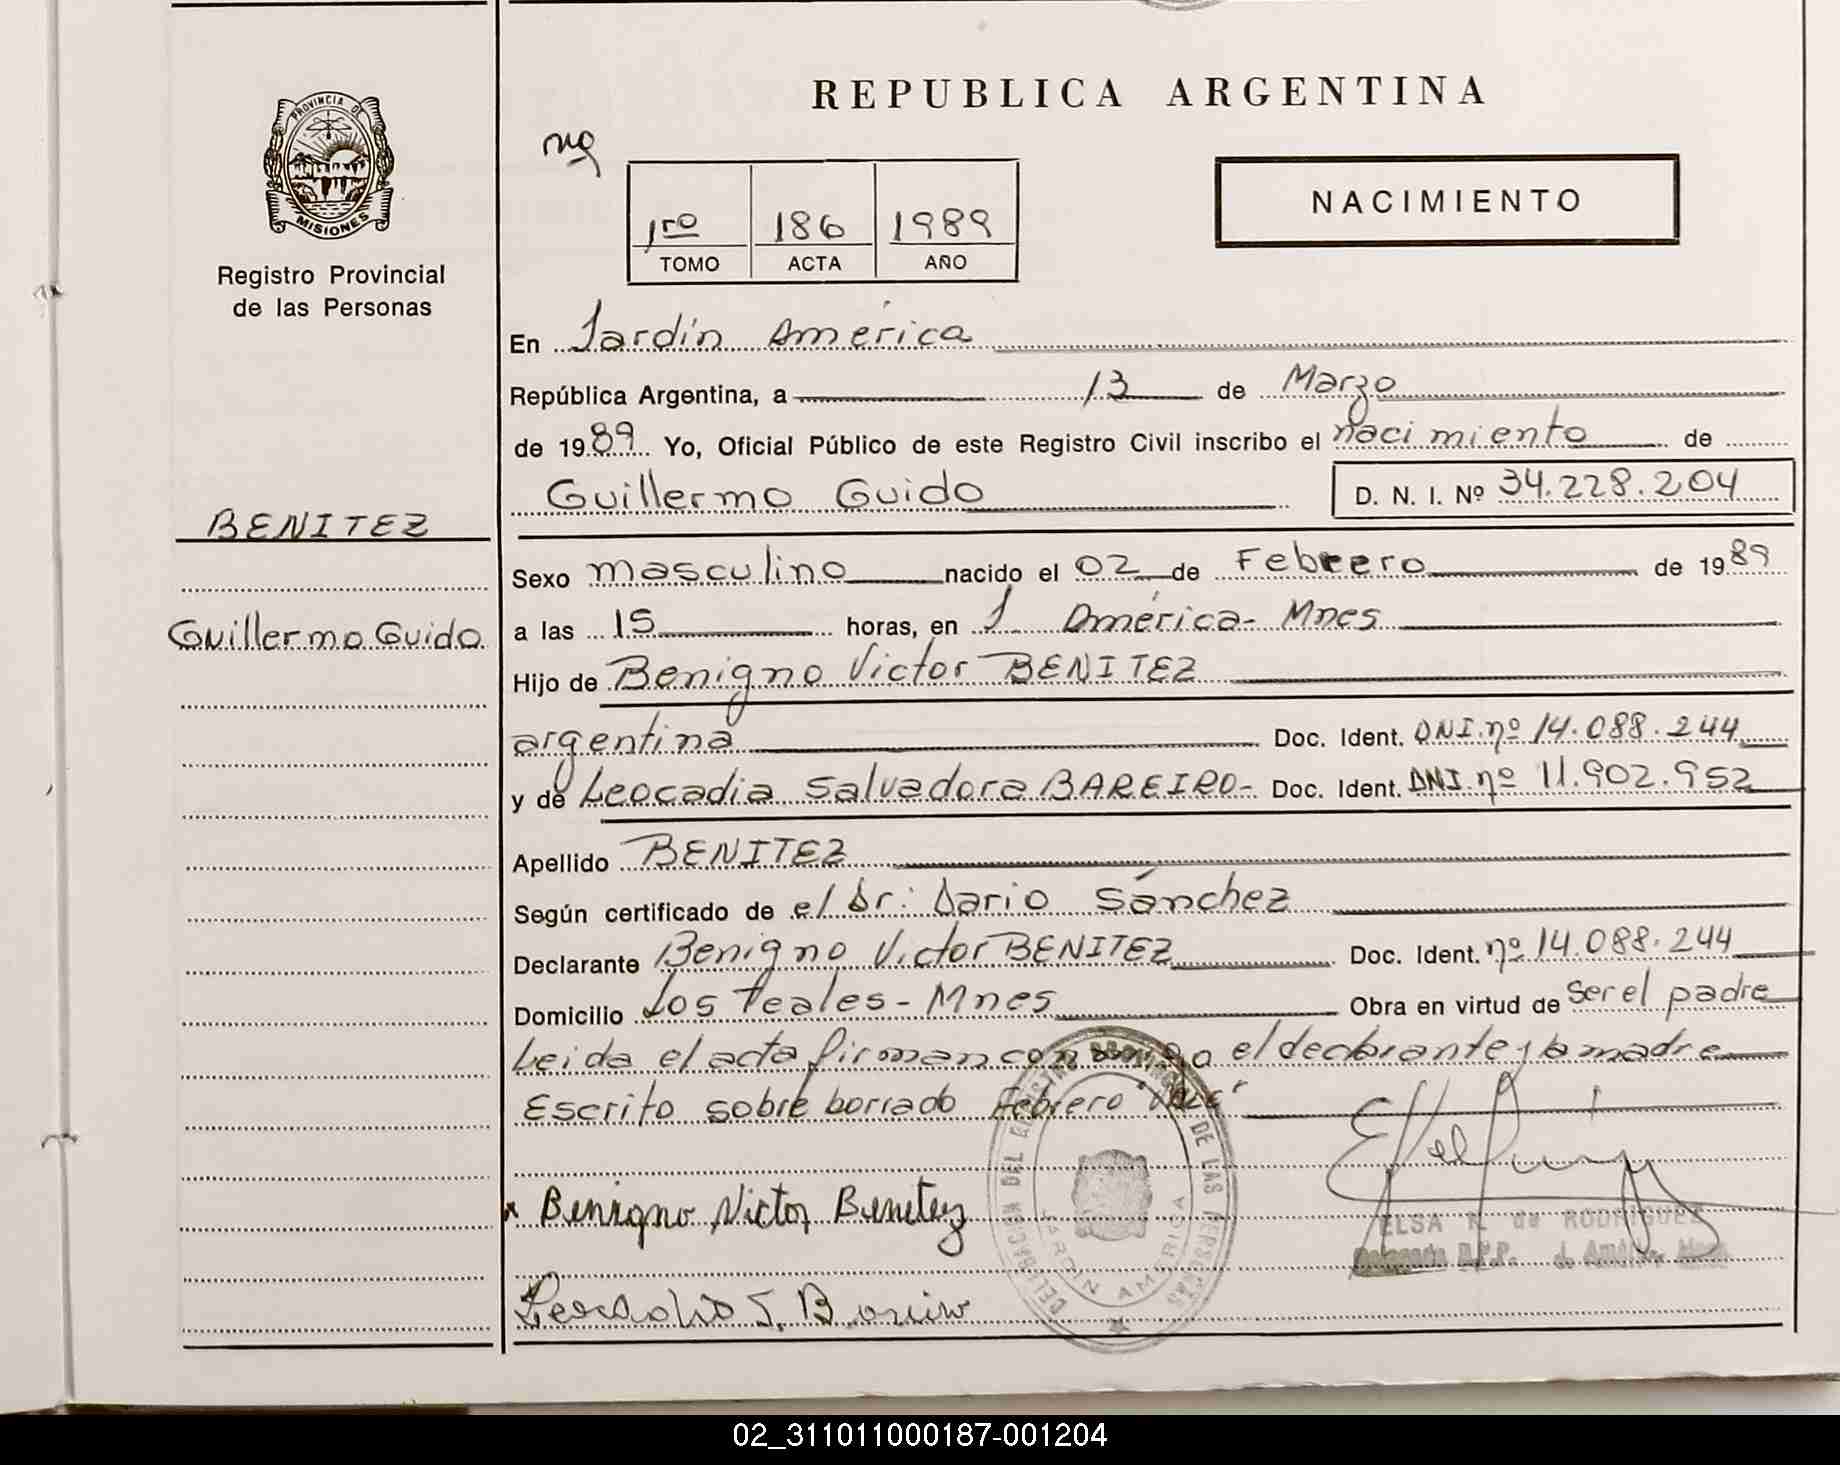 REPUBLICA ARGENTINA
PROVINCIA DE
MISIONES
Registro Provincial
de las Personas
1ro 186 1989
TOMO ACTA AÑO
NACIMIENTO
En Jardín América
República Argentina, a 13 de Marzo
de 1989 Yo, Oficial Público de este Registro Civil inscribo el nacimiento de
Guillermo Guido D. N. I. Nº 34.228.204
BENITEZ
Guillermo Guido
Sexo masculino nacido el 02 de Febrero de 1989
a las 15 horas, en J América - Mnes
Hijo de Benigno Victor BENITEZ
argentina Doc. Ident. DNI. nº 14.088.244
y de Leocadia Salvadora BAREIRO- Doc. Ident. DNI. nº 11.902.952
Apellido BENITEZ
Según certificado de el Dr: Dario Sánchez
Declarante Benigno Victor BENITEZ Doc. Ident. nº 14.088.244
Domicilio Los Teales - Mnes Obra en virtud de ser el padre
Leida el acta firman conmigo el declarante y la madre
Escrito sobre borrado Febrero "Vale"
x Benigno Victor Benitez
DEL REGISTRO PROVINCIAL DE LAS PERSONAS
JARDIN AMERICA
ELSA N. de RODRIGUEZ
Delegada R.P.P.
02_311011000187-001204